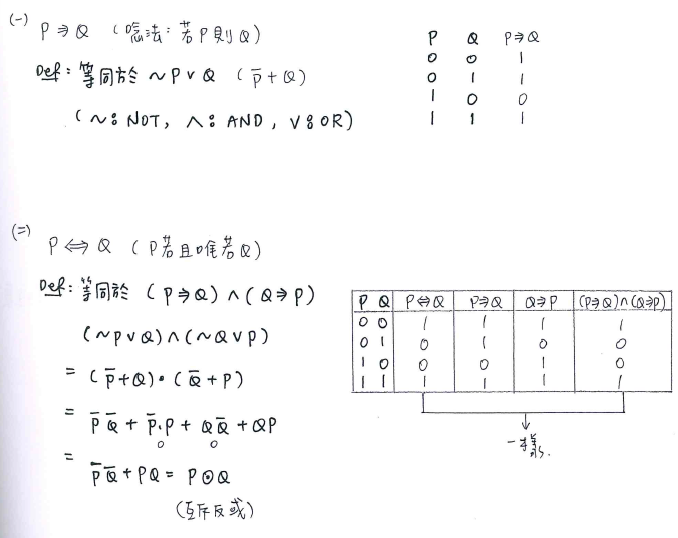 (一) P⇒Q (唸法: 若P則Q)
Def: 等同於 ~P∨Q (P̅+Q)
(~: NOT, ∧: AND, ∨: OR)
P Q P⇒Q
0 0 1
0 1 1
1 0 0
1 1 1
(二) P⇔Q (P若且唯若Q)
Def: 等同於 (P⇒Q)∧(Q⇒P)
(~P∨Q)∧(~Q∨P)
= (P̅+Q)•(Q̅+P)
= P̅Q̅+P̅.P+QQ̅+QP
0 0
= P̅Q̅+PQ = P⊙Q
(互斥反或)
P Q P⇔Q P⇒Q Q⇒P (P⇒Q)∧(Q⇒P)
0 0 1 1 1 1
0 1 0 1 0 0
1 0 0 0 1 0
1 1 1 1 1 1
一樣.